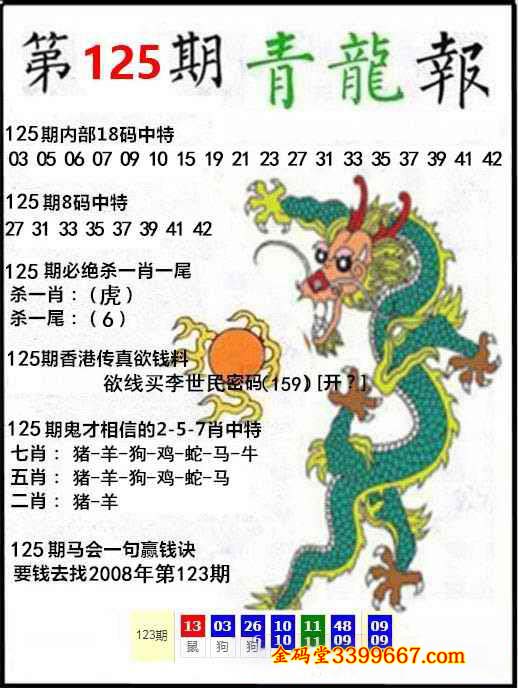 第125期 青龍報
125期内部18码中特
03 05 06 07 09 10 15 19 21 23 27 31 33 35 37 39 41 42
125期8码中特
27 31 33 35 37 39 41 42
125期必绝杀一肖一尾
杀一肖：(虎)
杀一尾：(6)
125期香港传真欲钱料
欲线买李世民密码(159)[开?]
125期鬼才相信的2-5-7肖中特
七肖：猪-羊-狗-鸡-蛇-马-牛
五肖：猪-羊-狗-鸡-蛇-马
二肖：猪-羊
125期马会一句赢钱诀
要钱去找2008年第123期
123期 13 03 26 10 11 48 09
6 10 11 09 09
鼠 狗 狗
金码堂3399667.com